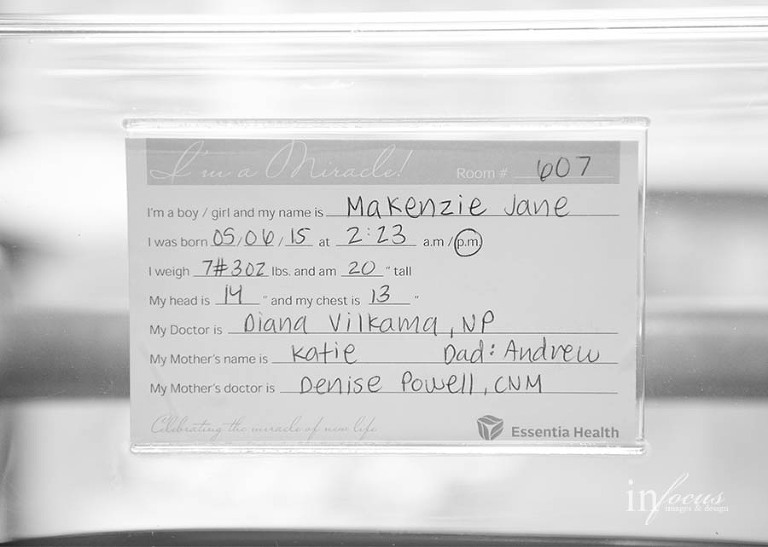 I'm a Miracle! Room # 607
I'm a boy / girl and my name is Makenzie Jane
I was born 05/06/15 at 2:23 a.m / p.m.
I weigh 7#3oz lbs. and am 20 " tall
My head is 14 " and my chest is 13 "
My Doctor is Diana Vilkama, NP
My Mother's name is Katie Dad: Andrew
My Mother's doctor is Denise Powell, CNM
Celebrating the miracle of new life
Essentia Health
infocus
images & design